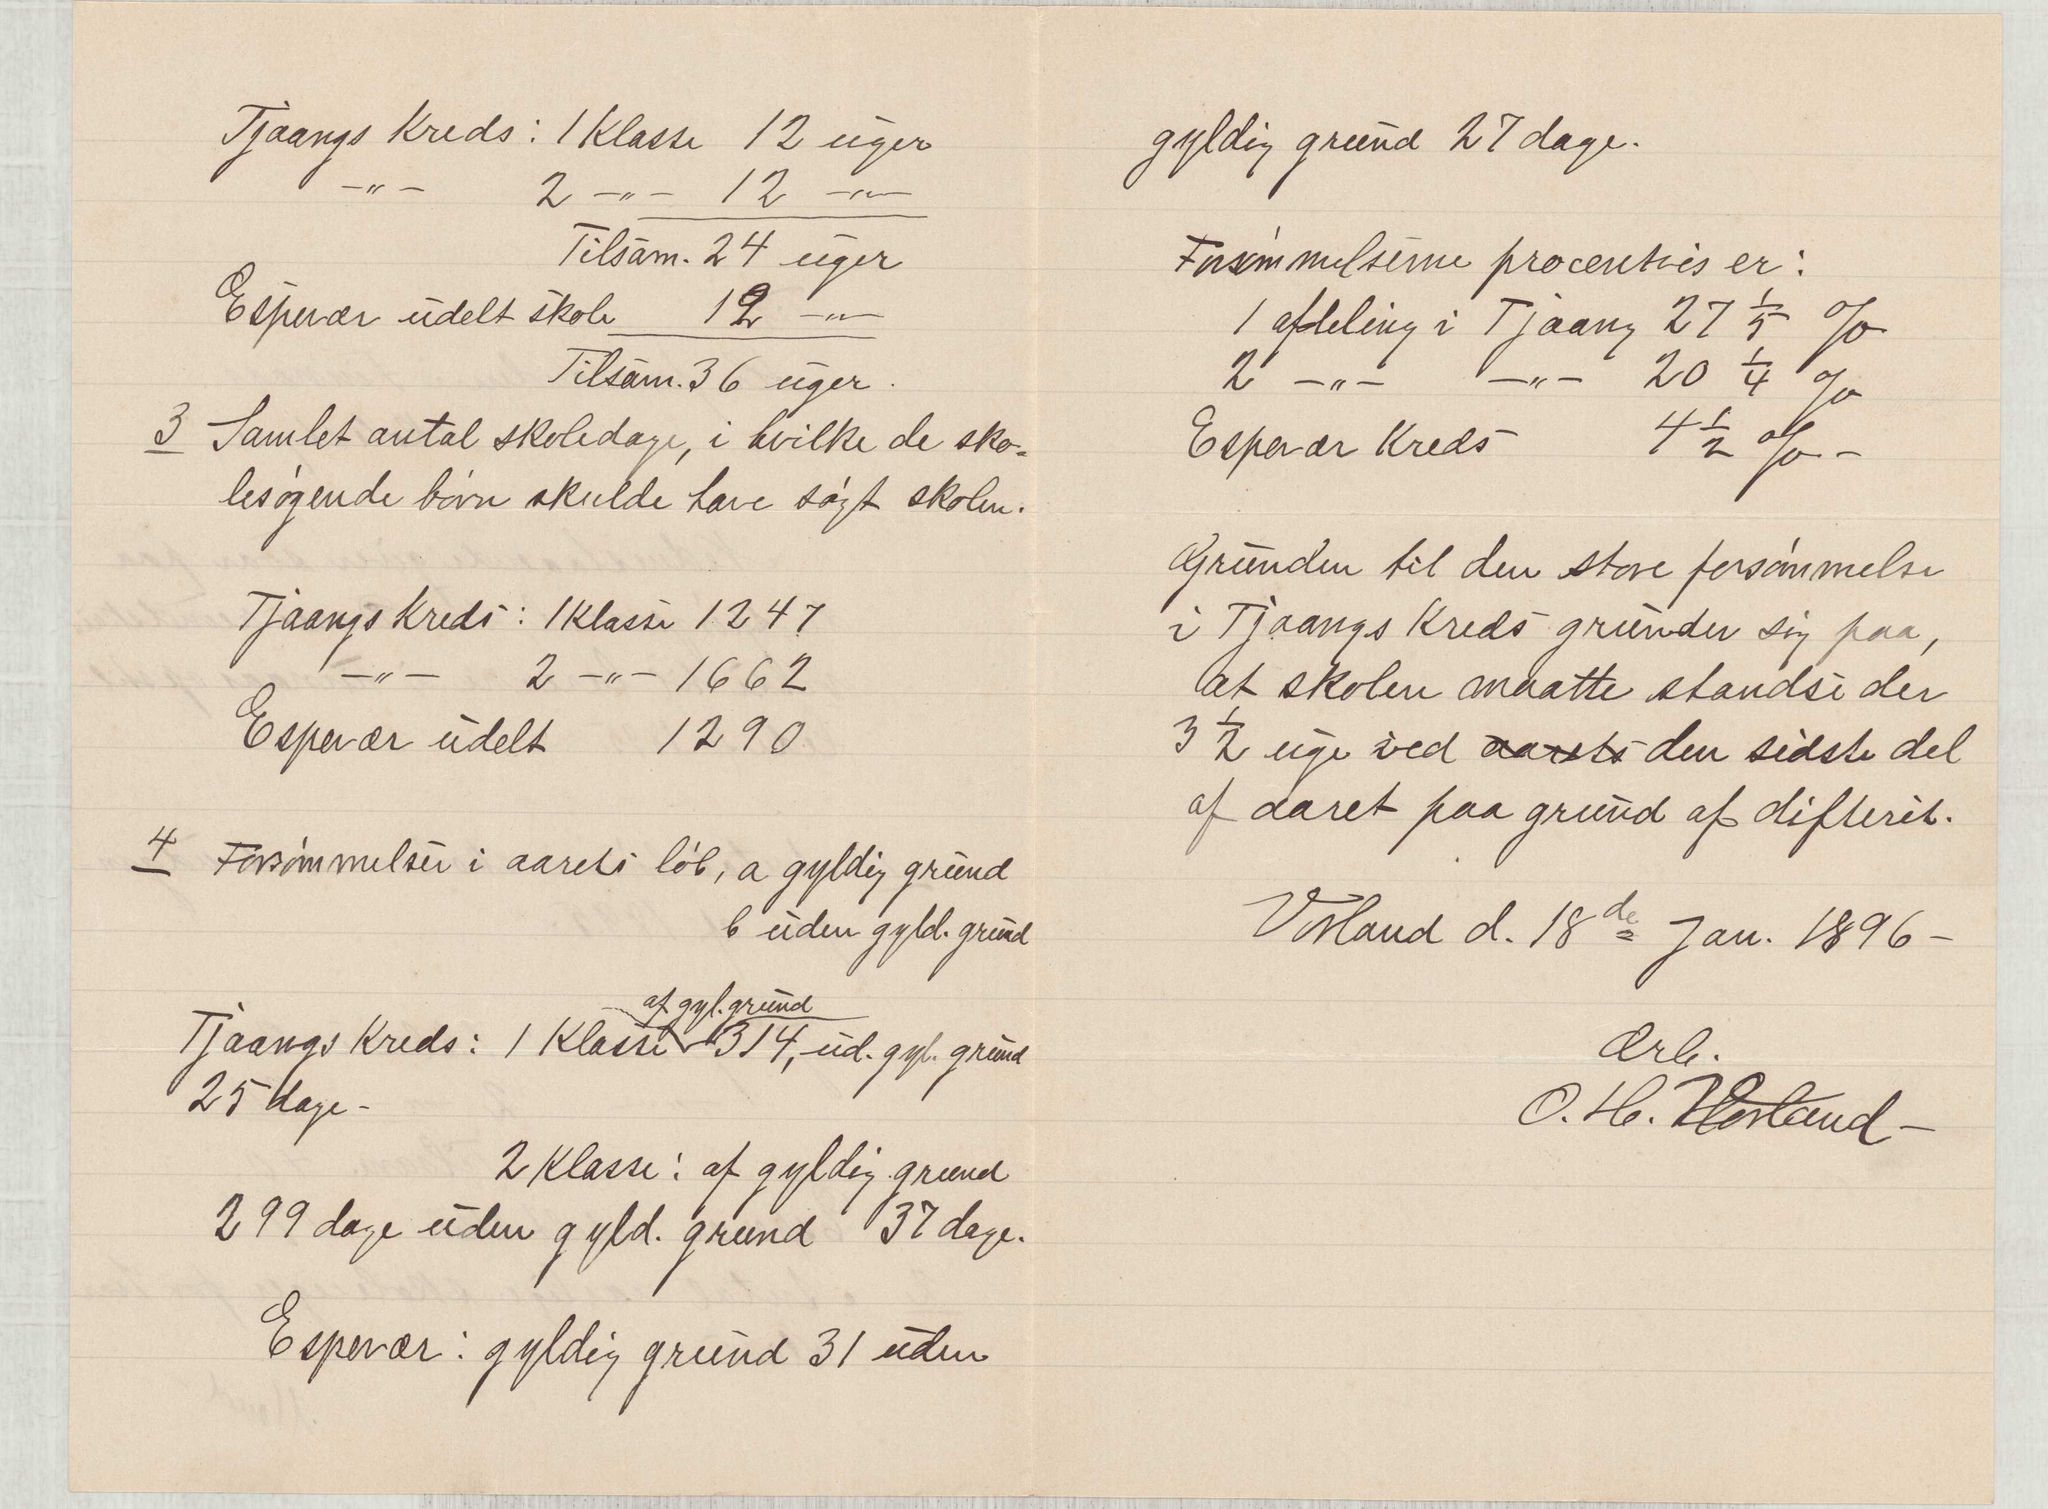 Tjaangs Kreds: 1 Klasse 12 uger
—〃— 2 —〃— 12 —〃—
Tilsam. 24 uger
Espevær udelt skole 12 —〃—
Tilsam. 36 uger.
3 Samlet antal skoledage, i hvilke de sko=
lesøgende børn skulde have søgt skolen.
Tjaangs Kreds: 1 Klasse 1247
—〃— 2 —〃— 1662
Espevær udelt 1290
4 Forsømmelser i aarets løb, a gyldig grund
b uden gyld. grund
af gyl. grund
Tjaangs Kreds: 1 Klasse 314, ud. gyl. grund
25 dage -
2 Klasse: af gyldig grund
299 dage uden gyld. grund 37 dage.
Espevær: gyldig grund 31 uden
gyldig grund 27 dage.
Forsømmelserne procentvis er:
1 afdeling i Tjaang 27 1/5 %
2 —〃— —〃— 20 1/4 %
Espevær Kreds 4 1/2 % -
Grunden til den store forsømmelse
i Tjaangs Kreds grunder sig paa,
at skolen maatte standse der
3 1/2 uge ved aarets den sidste del
af aaret paa grund af difterit.
Vorland d. 18de Jan. 1896 -
Ærb.
O. H. Vorland -